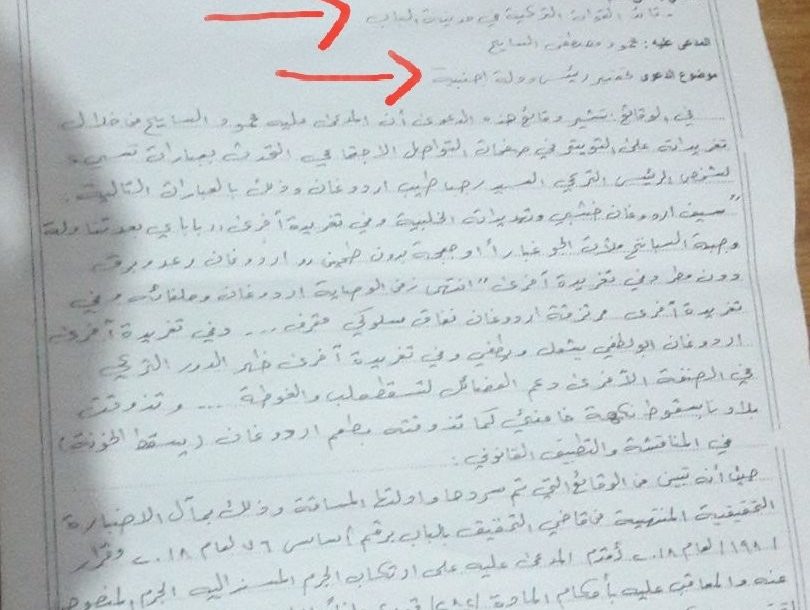 - قائد القوات التركية في مدينة الباب
المدعى عليه: محمود مصطفى السايح
موضوع الدعوى تحقير رئيس دولة اجنبية
في الوقائع: تشير وقائع هذه الدعوى أن المدعى عليه محمود السايح من خلال
تغريداته على التويتر في صفحات التواصل الاجتماعي اقدم بعبارات تسيء
لشخص الرئيس التركي السيد رجب طيب اردوغان وذلك بالعبارات التالية.
" سيف اردوغان خشبي وتهديداته الخلبية وفي تغريدة أخرى
ملأت الجو غباراً أو جعجعة بدون طحين اردوغان رعد وبرق
دون مطر وفي تغريدة أخرى " انتهى زمن الوصاية اردوغان وحلفائه وفي
تغريدة أخرى مرتزقة اردوغان نفاق سلوكي مقرف ... وفي تغريدة أخرى
اردوغان يشعل ويطفي وفي تغريدة أخرى ظهر الدور التركي
في الصفقة الأخرى دعم الفصائل لتسقط حلب والغوطة .... وتذوقت
بلادنا بسقوط نكهة خامنئي كما تذوقته بطعم اردوغان (يسقط الخونة)
في المناقشة والتطبيق القانوني:
حيث أنه تبين من الوقائع التي تم سردها واولتها المساقة وذلك بمآل الاضبارة
التحقيقية المنتهية من قاضي التحقيق بالباب برقم أساس ٧٦ لعام ٢٠١٨ وقرار
/١٩٨/ لعام ٢٠١٨ أقدم المدعى عليه على ارتكاب الجرم المسند إليه الجرم المنصوص
عنه والمعاقب عليه بأحكام المادة